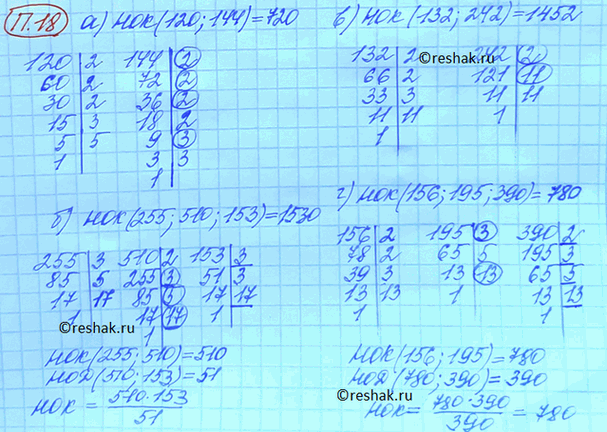 П.18
а) НОК(120; 144)=720
120 | 2 144 | 2
60 | 2 72 | 2
30 | 2 36 | 2
15 | 3 18 | 2
5 | 5 9 | 3
1 | 3 | 3
1 |
в) НОК(132; 242)=1452
132 | 2 242 | 2
66 | 2 121 | 11
33 | 3 11 | 11
11 | 11 1 |
1 |
©reshak.ru
б) НОК(255; 510; 153)=1530
255 | 3 510 | 2 153 | 3
85 | 5 255 | 3 51 | 3
17 | 17 85 | 5 17 | 17
1 | 17 | 17 1 |
1 |
©reshak.ru
НОК(255; 510)=510
НОД(510; 153)=51
НОК = 510·153 / 51
г) НОК(156; 195; 390)=780
156 | 2 195 | 3 390 | 2
78 | 2 65 | 5 195 | 3
39 | 3 13 | 13 65 | 5
13 | 13 1 | 13 | 13
1 | 1 |
НОК(156; 195)=780
НОД(780; 390)=390
©reshak.ru
НОК= 780·390 / 390 = 780